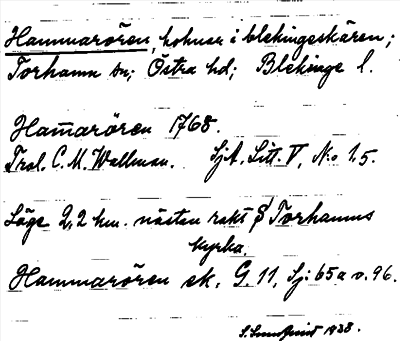 Hammarören, holmar i blekingeskären;
Torhamn sn; Östra hd; Blekinge l.
Ham̅arören 1768.
Trol. C. M. Wallman. SjA. Litt. V, N:o 1,5.
Läge 2,2 km. nästan rakt S Torhamns
kyrka.
Hammarören ek. G. 11, Sj: 65 a v. 96.
S. Lundqvist 1938.